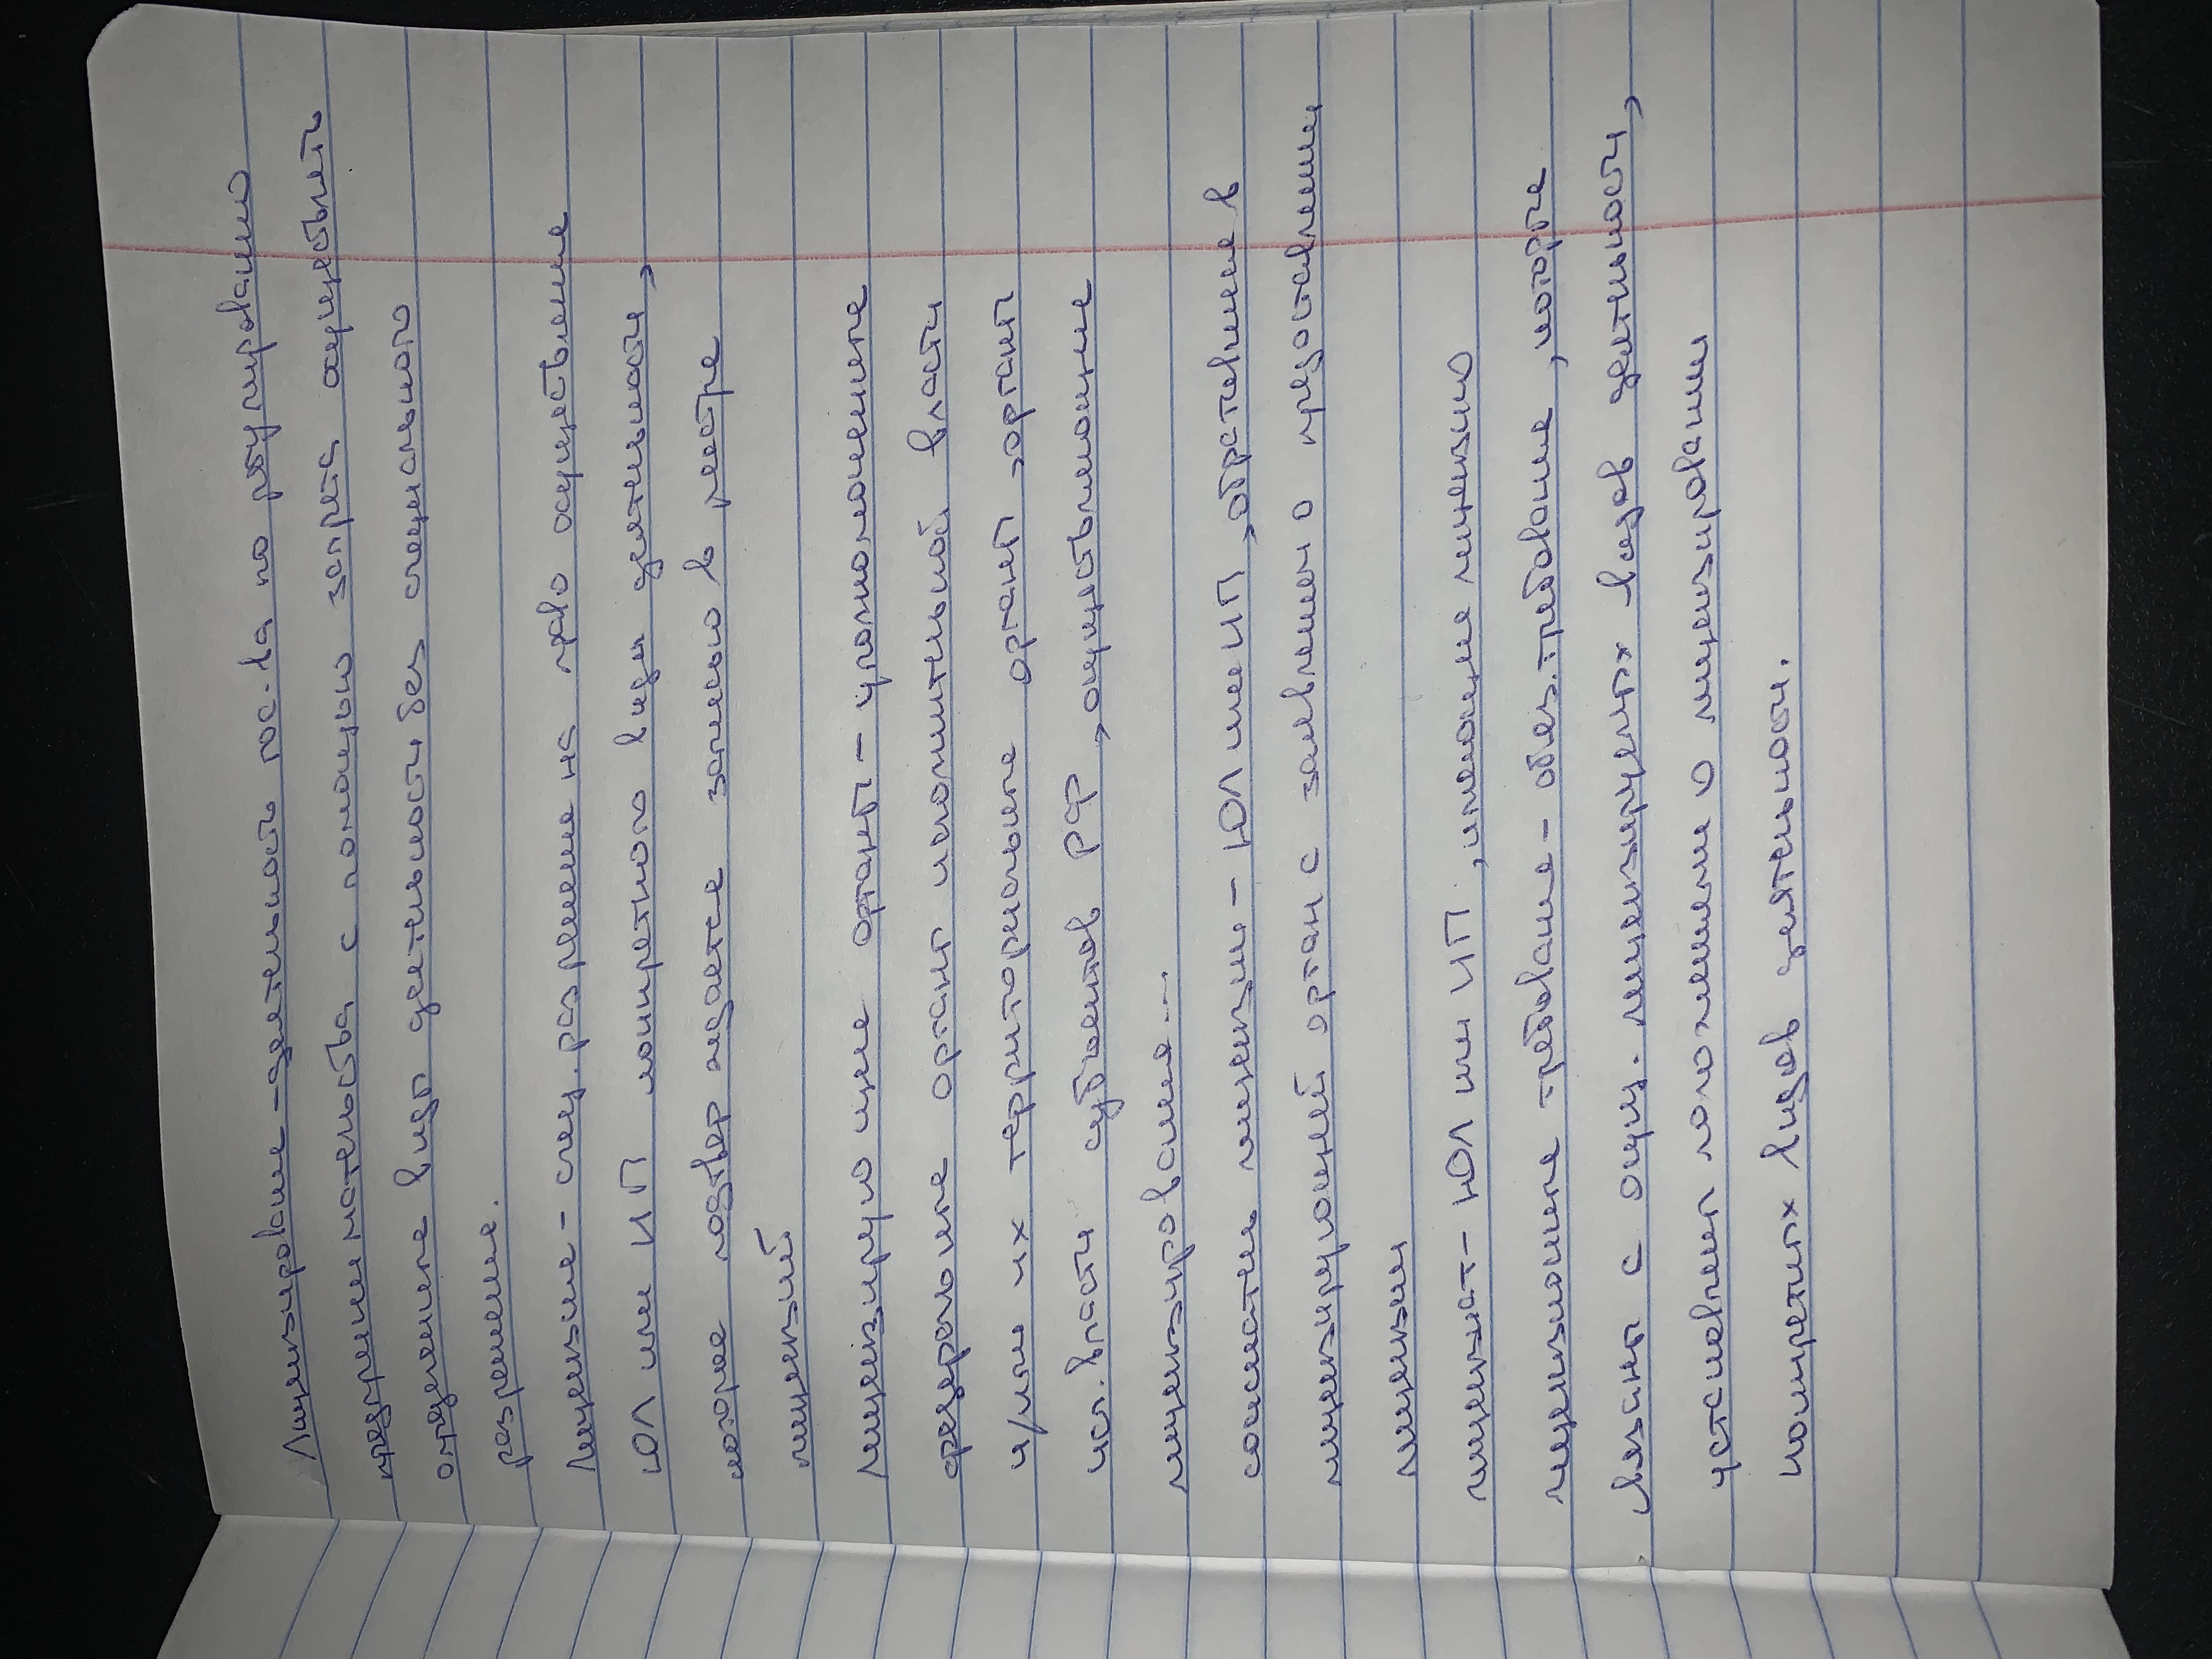 Лицензирование - деятельность гос-ва по регулированию
предпринимательства с помощью запрета осуществлять
определенные виды деятельности без специального
разрешения.
Лицензия - спец. разрешение на право осуществления
ЮЛ или ИП конкретного вида деятельности,
которое подтвер ждается записью в реестре
лицензий
Лицензирующие органы - уполномоченные
федеральные органы исполнительной власти
и/или их территориальные органы, органы
исп. власти субъектов РФ, осуществляющие
лицензирование...
соискатель лицензии - ЮЛ или ИП, обратившиеся в
лицензирующий орган с заявлением о предоставлении
лицензии
лицензиат - ЮЛ или ИП, имеющие лицензию
лицензионные требования - обяз. требования, которые
связаны с осущ. лицензируемых видов деятельности,
установлены положениями о лицензировании
конкретных видов деятельности.